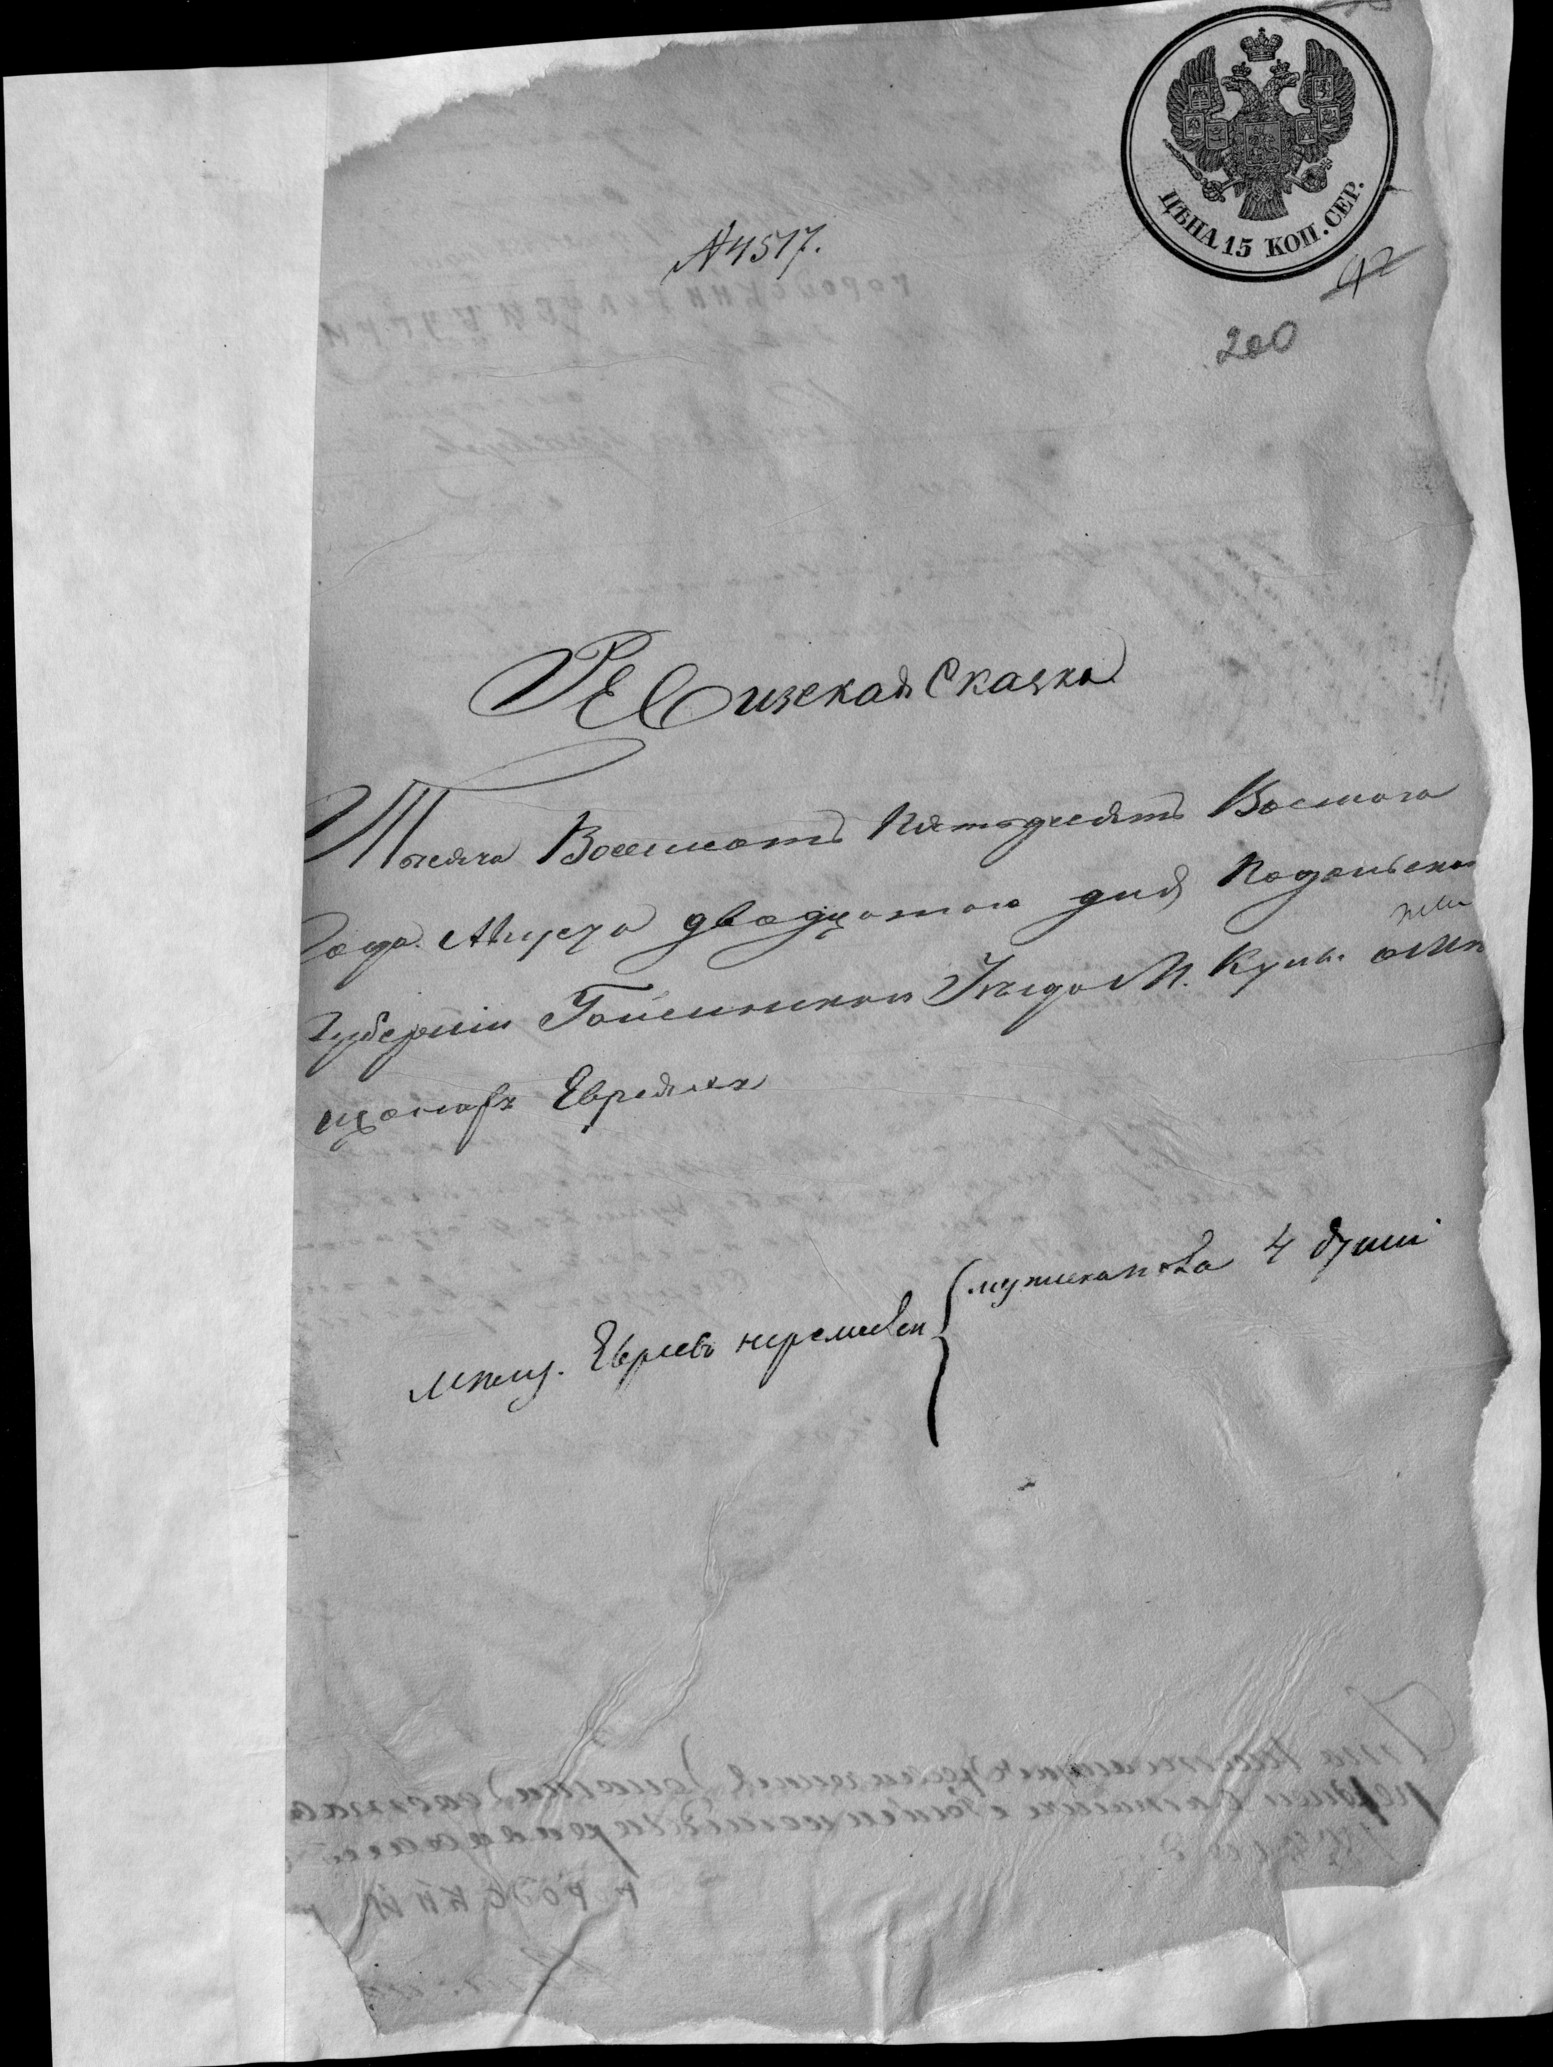 ЦѢНА 15 КОП. СЕР.
№4517.
42
200
РЕвизская Сказка
Тысяча Восемсотъ Пятьдесятъ Восмого
Года. Августа двадцатого дня Подольской
Губерніи Гайсинскаго Уезда М. Куны. о
щанахъ Евреяхъ
Евреевъ мужеска пола 4 души